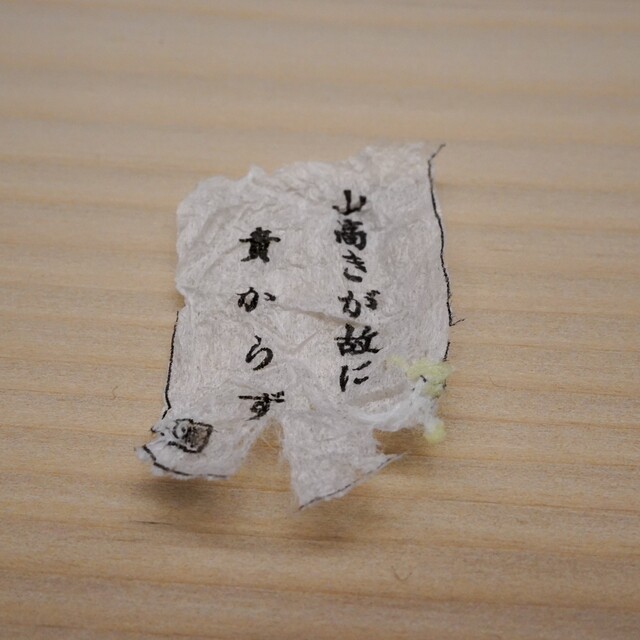 山高きが故に
貴からず